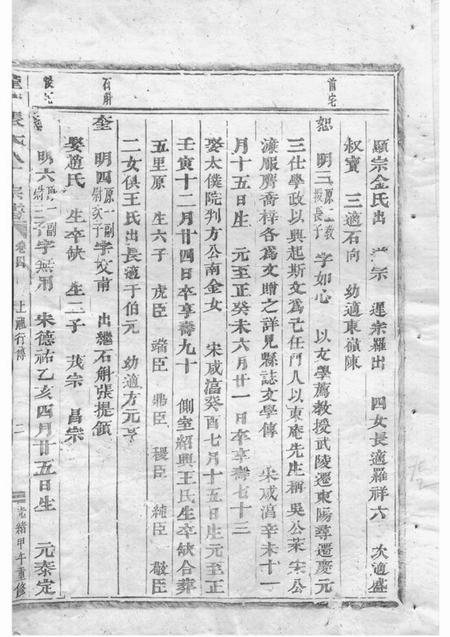 首宅
石斛
顯宗金氏出 宗 運宗羅出 四女長適羅祥六 次適盛
叔寶 三適石向 幼適東嶺陳
恕 明三 原一教
授長子 字如心 以文學薦教授武陵遷東陽尋遷慶元
三仕學政以興起斯文爲己任門人以東庵先生稱吳公萊宋公
濂服膺喬梓各爲文贈之詳見縣誌文學傳 宋咸淳辛未十一
月十五日生 元至正癸未六月廿一日卒享壽七十三
娶太僕院判方公南金女 宋咸淳癸酉七月十五日生元至正
壬寅十二月廿四日卒享壽九十 側室紹興王氏生卒缺合葬
五里原 生六子 虎臣 端臣 鼎臣 稷臣 純臣 敬臣
二女俱王氏出長適于伯元 幼適方元亨
奎 明四 原一副
尉次子 字文甫 出繼石斛張提領
娶趙氏 生卒缺 生二子 茂宗 昌宗
明六 原一副
尉三子 字無用 宋德祐乙亥四月廿五日生 元泰定
卷四 上 行傳 二 光緒甲午重修